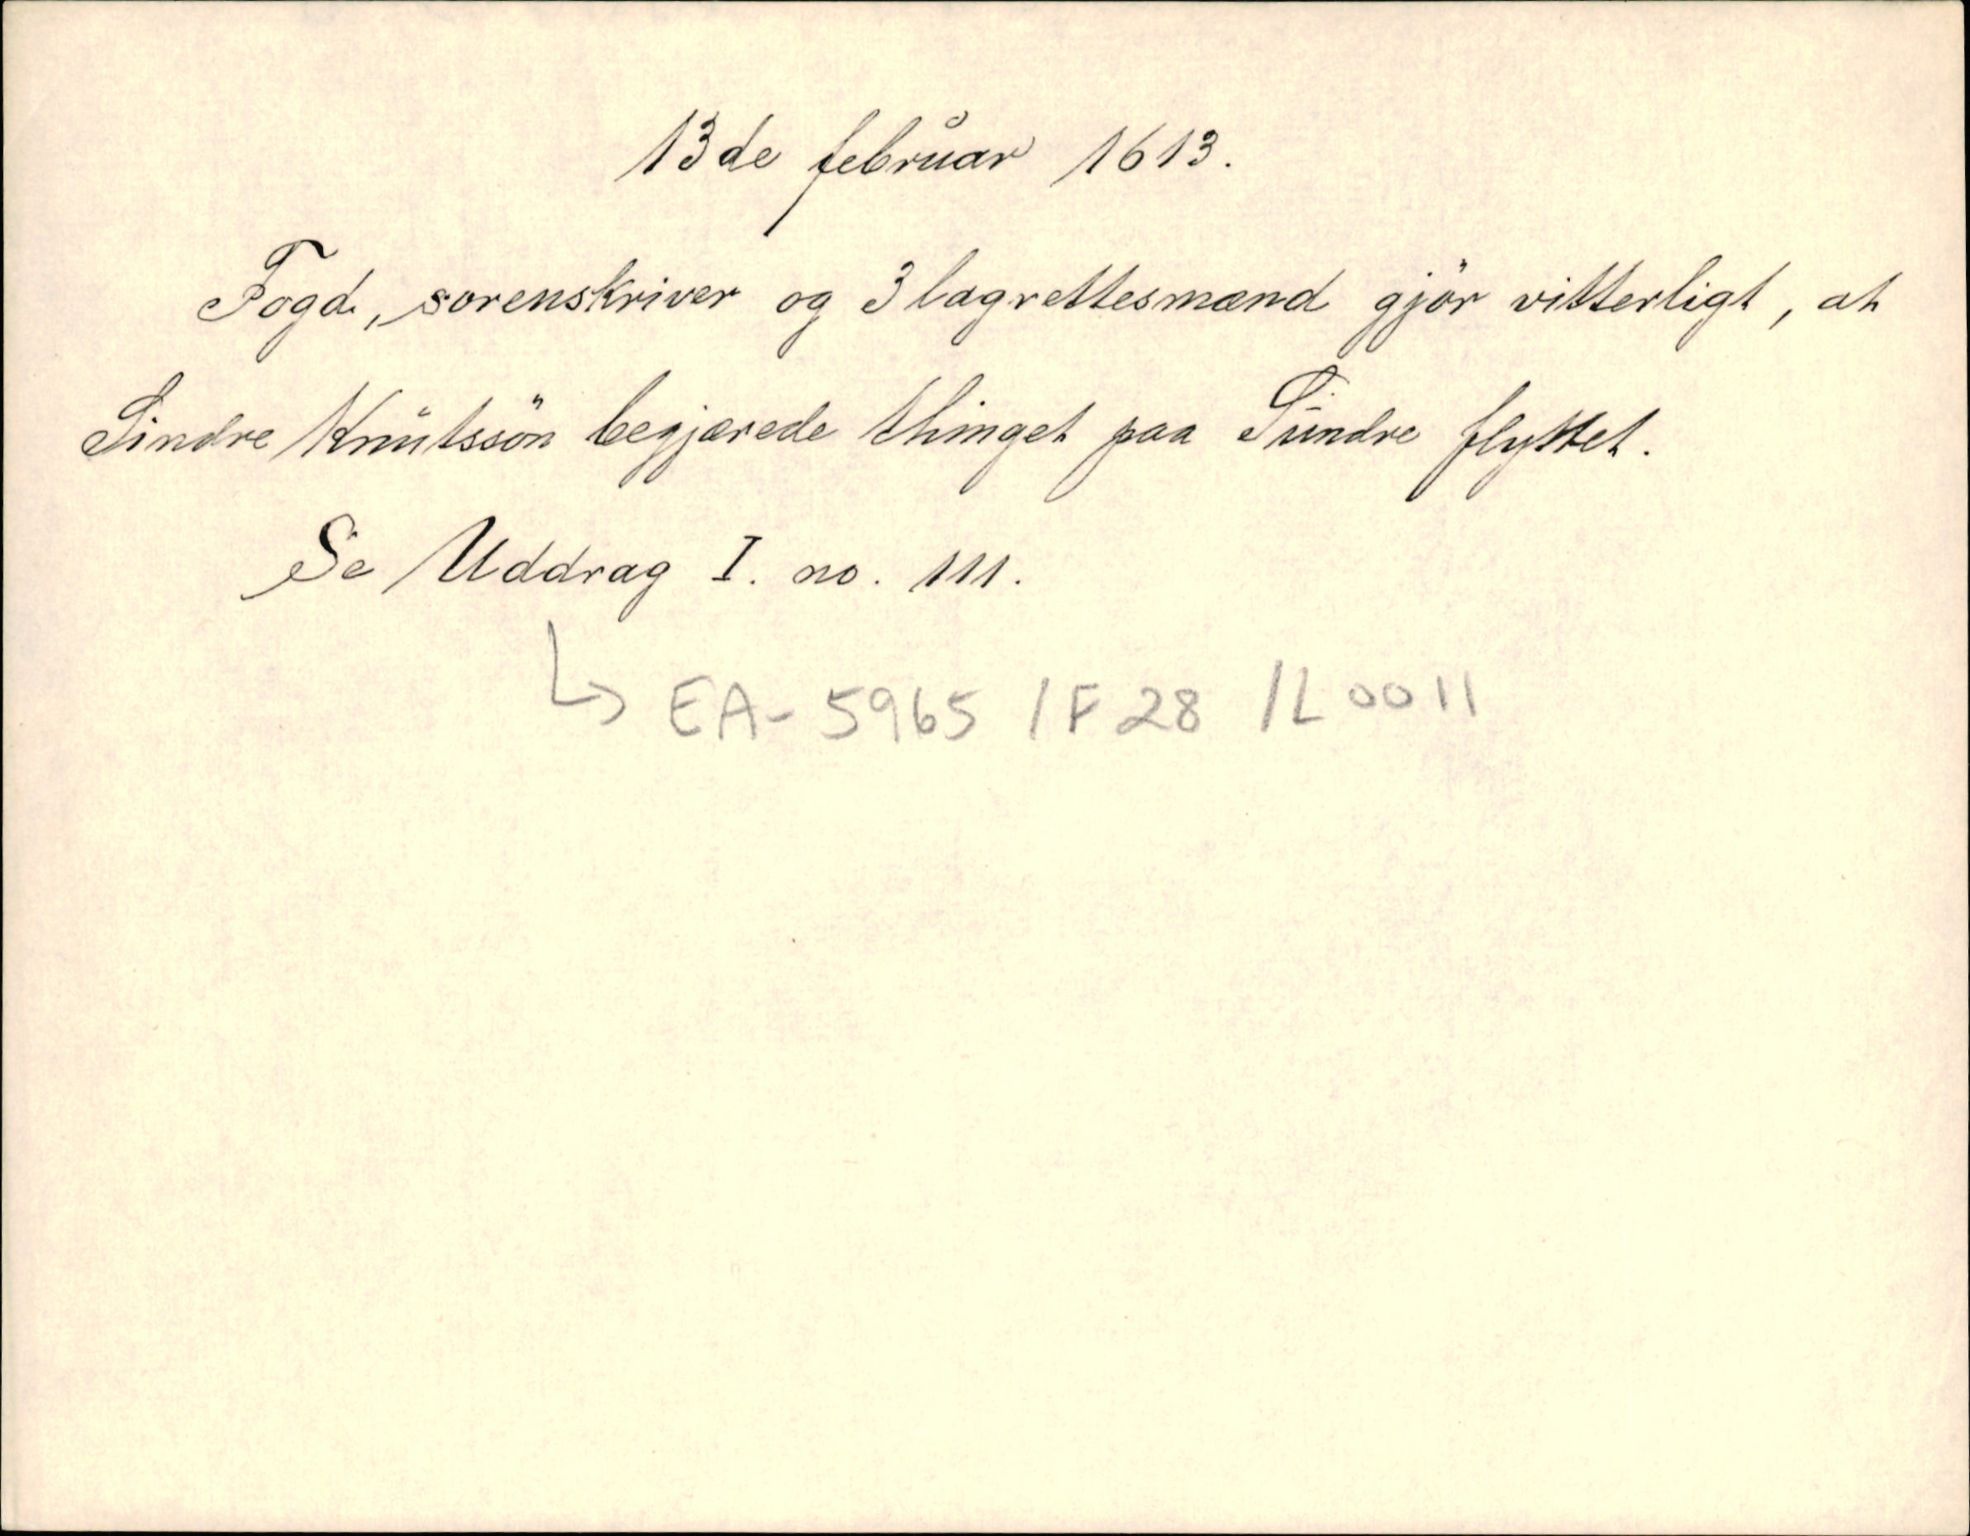 13de februar 1613.
Fogd, sorenskriver og 3 lagrettesmænd gjör vitterligt, at
Sindre Knutssön begjærede thinget paa Sundre flyttet.
Se Uddrag I. no. 111.
↳ EA-5965 /F28 /L0011